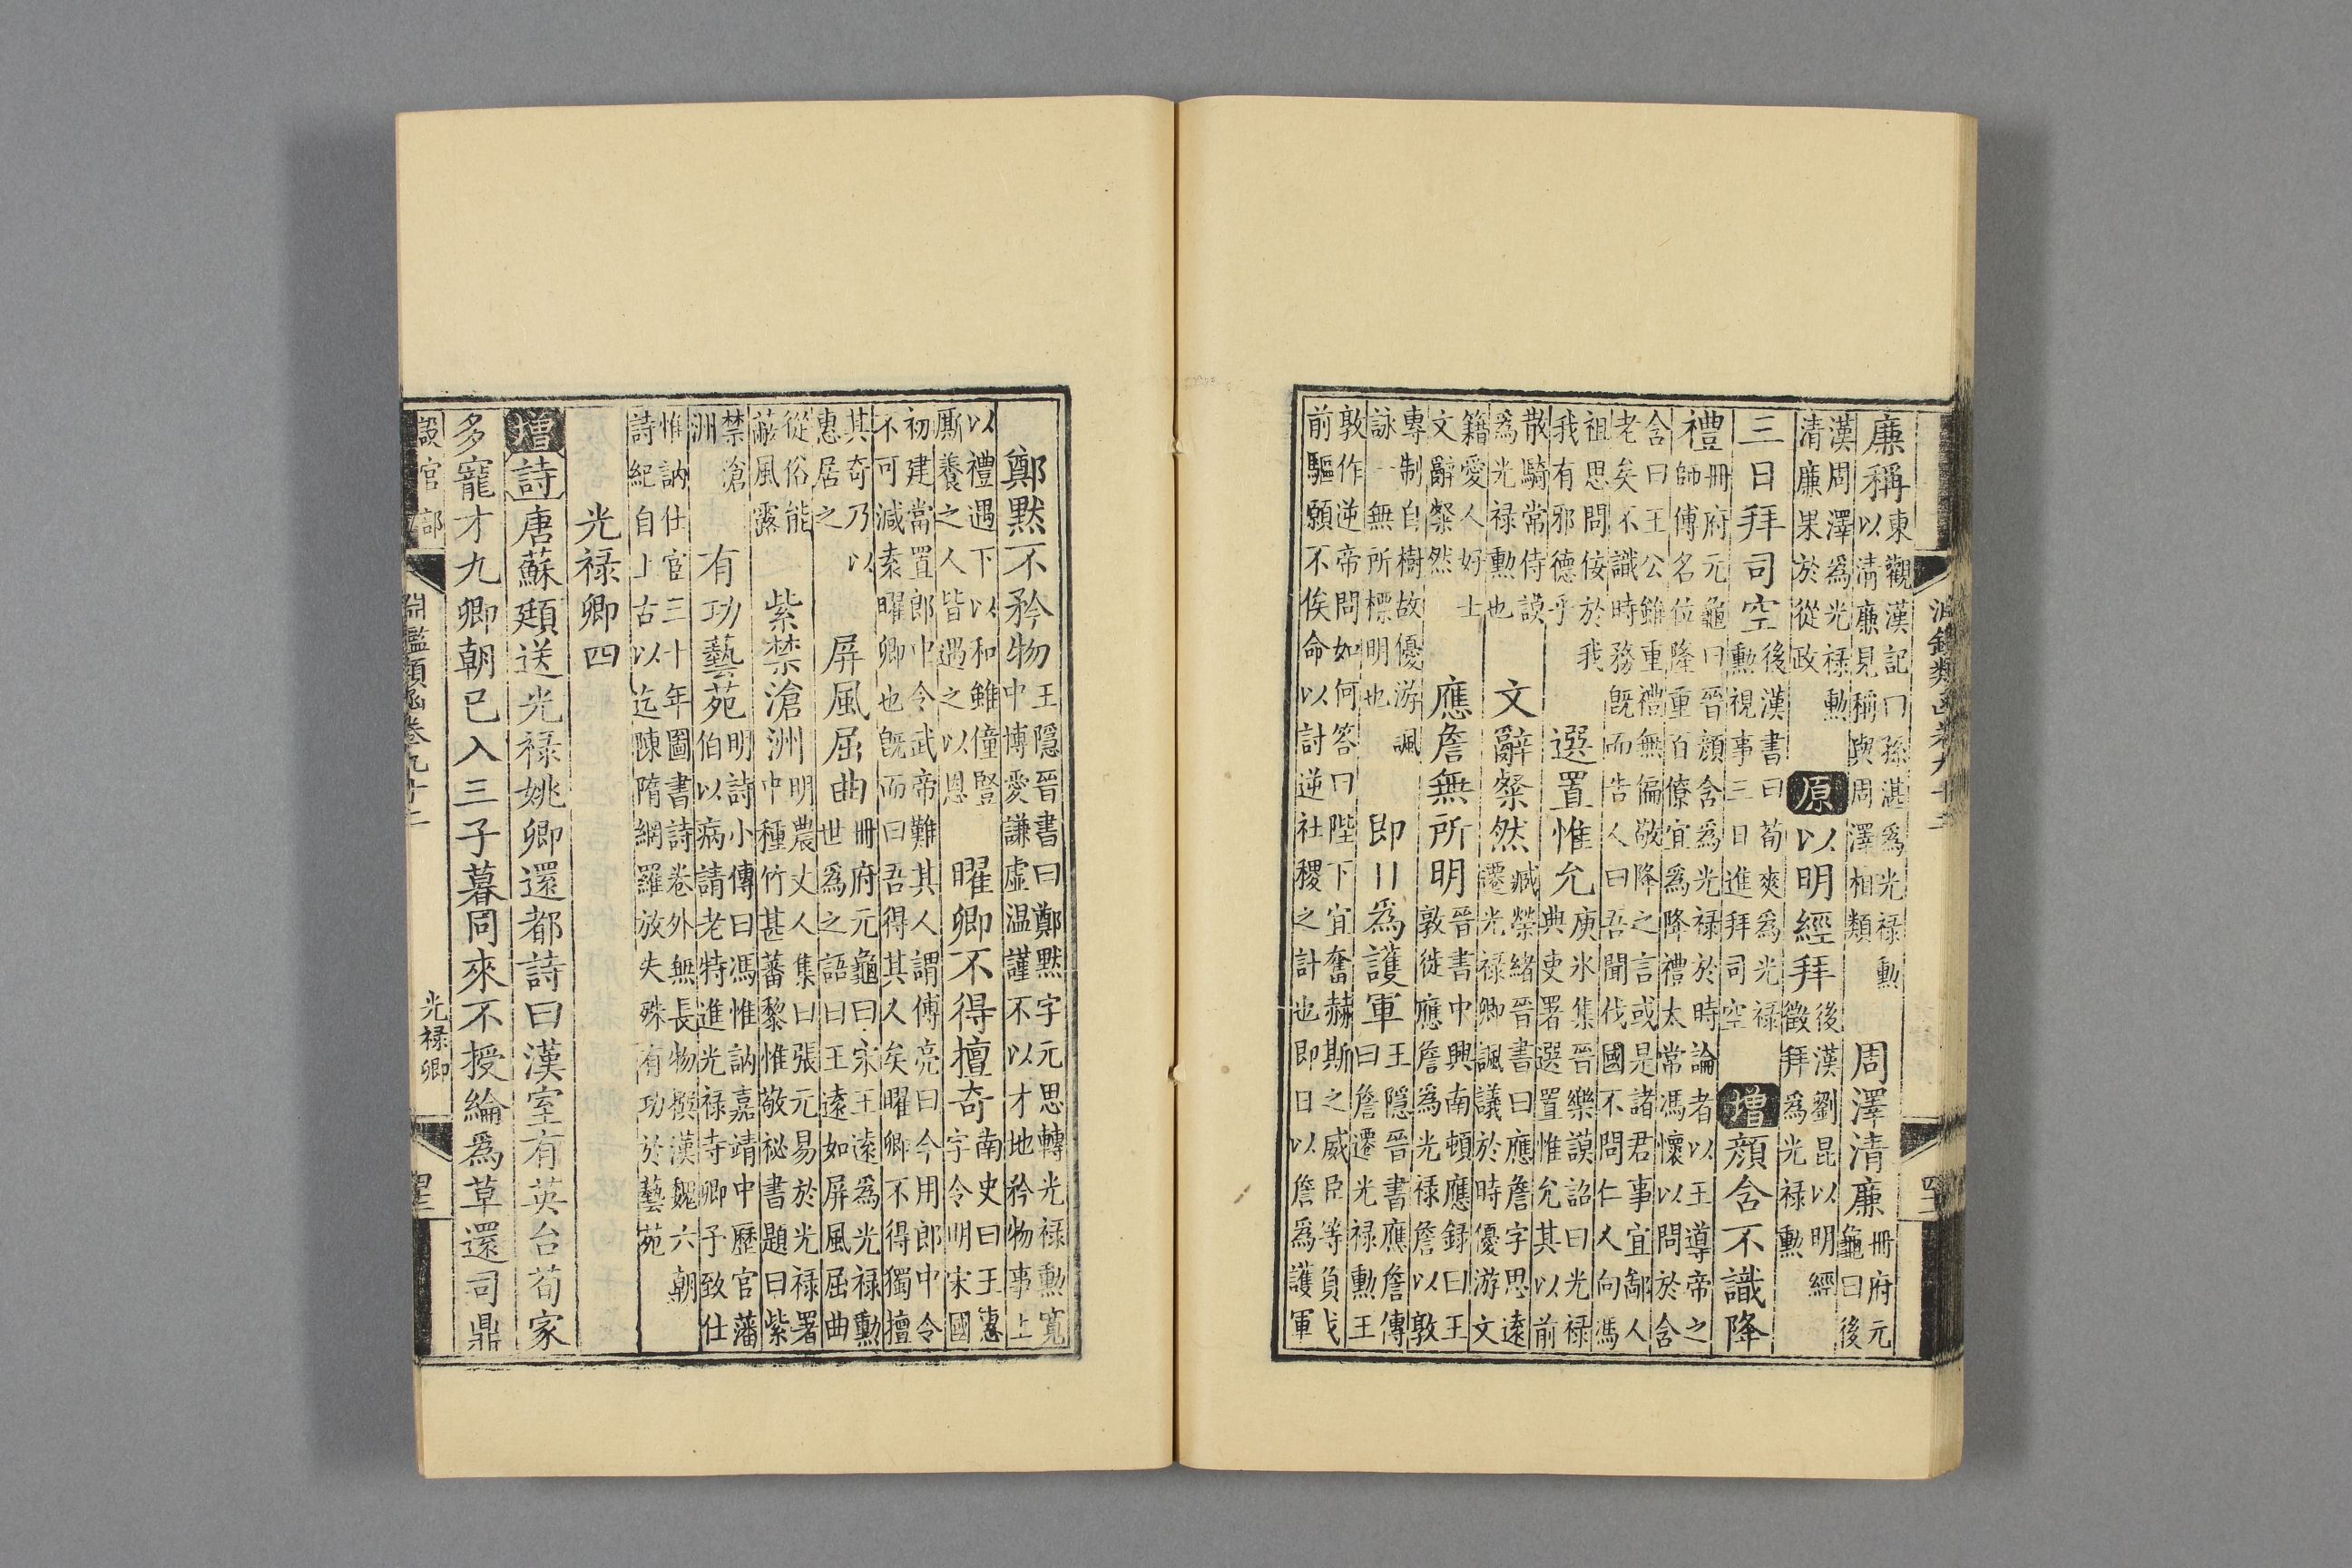 廉稱東觀漢記曰孫湛爲光禄勲以清廉見稱與周澤相類周澤清廉冊府元龜曰後
漢周澤爲光禄勲清廉果於從政原以明經拜後漢劉昆以明經徵拜爲光禄勲
三日拜司空後漢書曰荀爽爲光禄勲視事三日進拜司空增顔含不識降
禮冊府元龜曰晉顔含爲光禄於時論者以王導帝之師傅名位隆重百僚宜爲降禮太常馮懷以問於含
含曰王公雖重禮無偏敬降之言或是諸君事宜鄙人老矣不識時務既而告人曰吾聞伐國不問仁人向馮
祖思問佞於我我有邪德乎選置惟允庾氷集晉樂謨詔曰光禄典吏署選置惟允其以前
散騎常侍謨爲光禄勲也文辭粲然臧榮緒晉書曰應詹字思遠遷光禄卿諷議於時優游文
籍愛人好士文辭粲然應詹無所明晉書中興南頓應録曰王敦徙應詹爲光禄詹以敦
專制自樹故優游諷詠一無所標明也即爲護軍王隱晉書應詹傳曰詹遷光禄勲王
敦作逆帝問如何答曰陛下宜奮赫斯之威臣等負戈前驅願不俟命以討逆社稷之計也即日以詹爲護軍
鄭默不矜物王隱晉書曰鄭默字元思轉光禄勲寬中博愛謙虛温謹不以才地矜物事上
以禮遇下以和雖僮豎厮養之人皆遇之以恩曜卿不得擅奇南史曰王惠字令明宋國
初建當置郎中令武帝難其人謂傅亮曰今用郎中令不可減袁曜卿也既而曰吾得其人矣曜卿不得獨擅
其奇乃以惠居之屏風屈曲冊府元龜曰宋王遠爲光禄勲世爲之語曰王遠如屏風屈曲
從俗能蔽風露紫禁滄洲明農丈人集曰張元易於光禄署中種竹甚蕃黎惟敬祕書題曰紫
禁滄洲有功藝苑明詩小傳曰馮惟訥嘉靖中歷官藩伯以病請老特進光禄寺卿予致仕
惟訥仕宦三十年圖書詩卷外無長物撰漢魏六朝詩紀自上古以迄陳隋網羅放失殊有功於藝苑
光禄卿四
增詩唐蘇頲送光禄姚卿還都詩曰漢室有英台荀家
多寵才九卿朝已入三子暮同來不授綸爲草還司鼎
設官部
淵鑑類函卷九十二
光禄卿